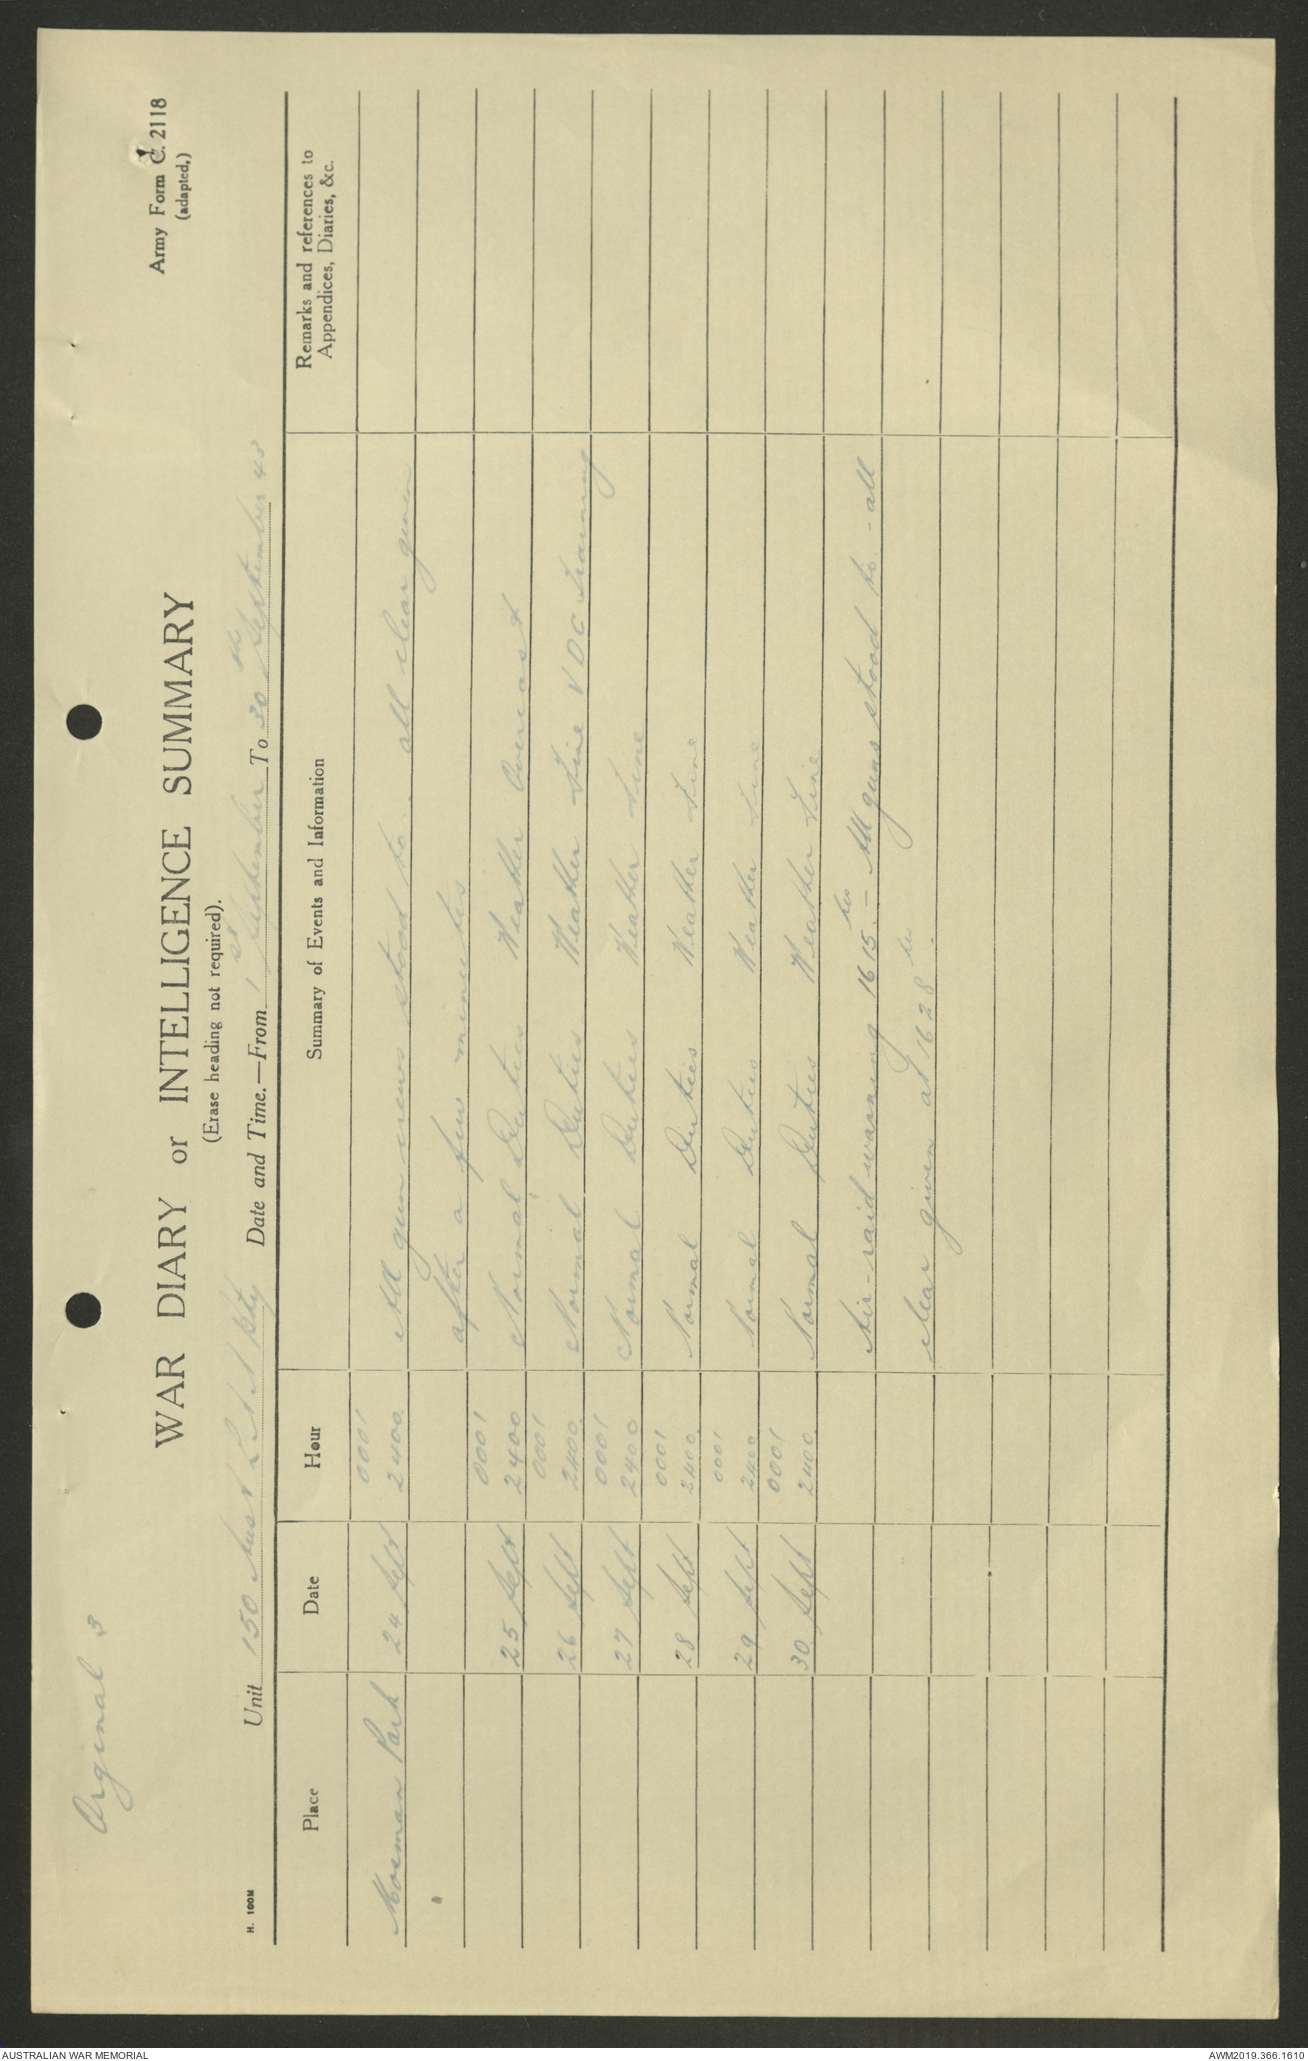 Orginal 3
Army Form C. 2118
(adapted.)
WAR DIARY or INTELLIGENCE SUMMARY
(Erase heading not required).
H. 100M
Unit 150 Aust L A A Bty Date and Time.—From 1st September To 30th September 43
Place Date Hour Summary of Events and Information Remarks and references to
Appendices, Diaries, &c.
0001
Mosman Park 24 Sept 2400 All gun crews stood to. all clear given
after a few minutes
0001
25 Sept 2400 Normal Duties Weather Overcast
0001
26 Sept 2400 Normal Duties Weather Fine VDC Training
0001
27 Sept 2400 Normal Duties Weather Fine
0001
28 Sept 2400 Normal Duties Weather Fine
0001
29 Sept 2400 Normal Duties Weather Fine
0001
30 Sept 2400 Normal Duties Weather Fine
Air raid warning 1615 hrs – All guns stood to - all
clear given at 1628 hrs.
AUSTRALIAN WAR MEMORIAL
AWM2019.366.1610